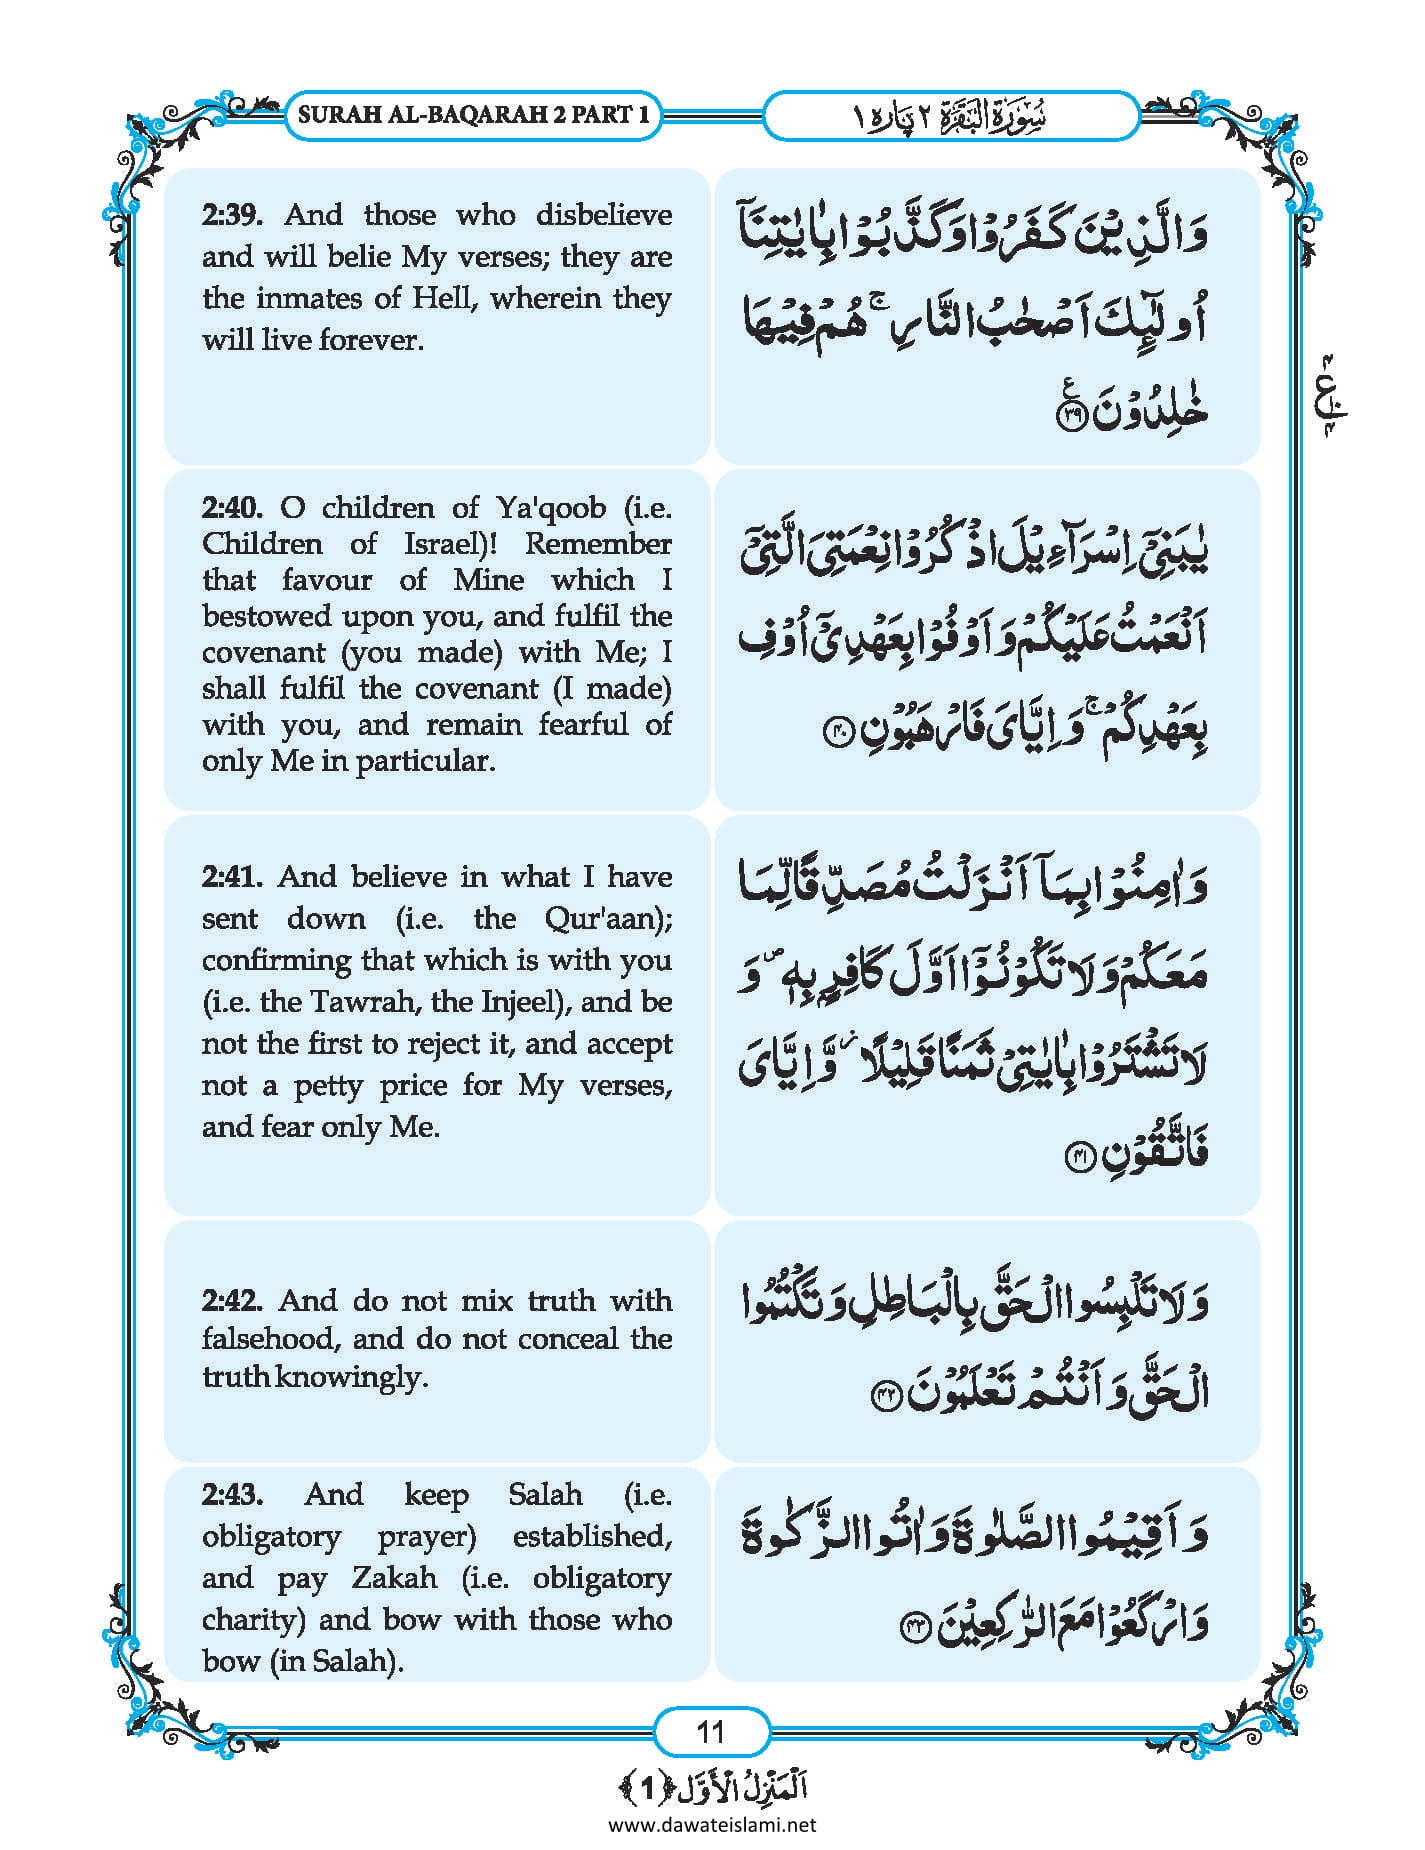 SURAH AL-BAQARAH 2 PART 1
سُوْرَةُ الْبَقَرَة ٢ پَارہ ١
2:39. And those who disbelieve
and will belie My verses; they are
the inmates of Hell, wherein they
will live forever.
وَالَّذِيْنَ كَفَرُوْا وَكَذَّبُوْا بِاٰيٰتِنَاۤ
اُولٰٓىِٕكَ اَصْحٰبُ النَّارِ ۚ هُمْ فِيْهَا
خٰلِدُوْنَ ؏﴿۳۹﴾
2:40. O children of Ya'qoob (i.e.
Children of Israel)! Remember
that favour of Mine which I
bestowed upon you, and fulfil the
covenant (you made) with Me; I
shall fulfil the covenant (I made)
with you, and remain fearful of
only Me in particular.
يٰبَنِيْۤ اِسْرَآءِيْلَ اذْكُرُوْا نِعْمَتِيَ الَّتِيْۤ
اَنْعَمْتُ عَلَيْكُمْ وَ اَوْفُوْا بِعَهْدِيْۤ اُوْفِ
بِعَهْدِكُمْ ۚ وَ اِيَّايَ فَارْهَبُوْنِ ﴿۴۰﴾
2:41. And believe in what I have
sent down (i.e. the Qur'aan);
confirming that which is with you
(i.e. the Tawrah, the Injeel), and be
not the first to reject it, and accept
not a petty price for My verses,
and fear only Me.
وَاٰمِنُوْا بِمَاۤ اَنْزَلْتُ مُصَدِّقًا لِّمَا
مَعَكُمْ وَلَا تَكُوْنُوْۤا اَوَّلَ كَافِرٍۭ بِهٖ ۪ وَ
لَا تَشْتَرُوْا بِاٰيٰتِيْ ثَمَنًا قَلِيْلًا ؗ وَّ اِيَّايَ
فَاتَّقُوْنِ ﴿۴۱﴾
2:42. And do not mix truth with
falsehood, and do not conceal the
truth knowingly.
وَلَا تَلْبِسُوا الْحَقَّ بِالْبَاطِلِ وَ تَكْتُمُوا
الْحَقَّ وَ اَنْتُمْ تَعْلَمُوْنَ ﴿۴۲﴾
2:43. And keep Salah (i.e.
obligatory prayer) established,
and pay Zakah (i.e. obligatory
charity) and bow with those who
bow (in Salah).
وَ اَقِيْمُوا الصَّلٰوةَ وَ اٰتُوا الزَّكٰوةَ
وَ ارْكَعُوْا مَعَ الرّٰكِعِيْنَ ﴿۴۳﴾
11
اَلْمَنْزِلُ الْاَوَّل ﴿1﴾
www.dawateislami.net